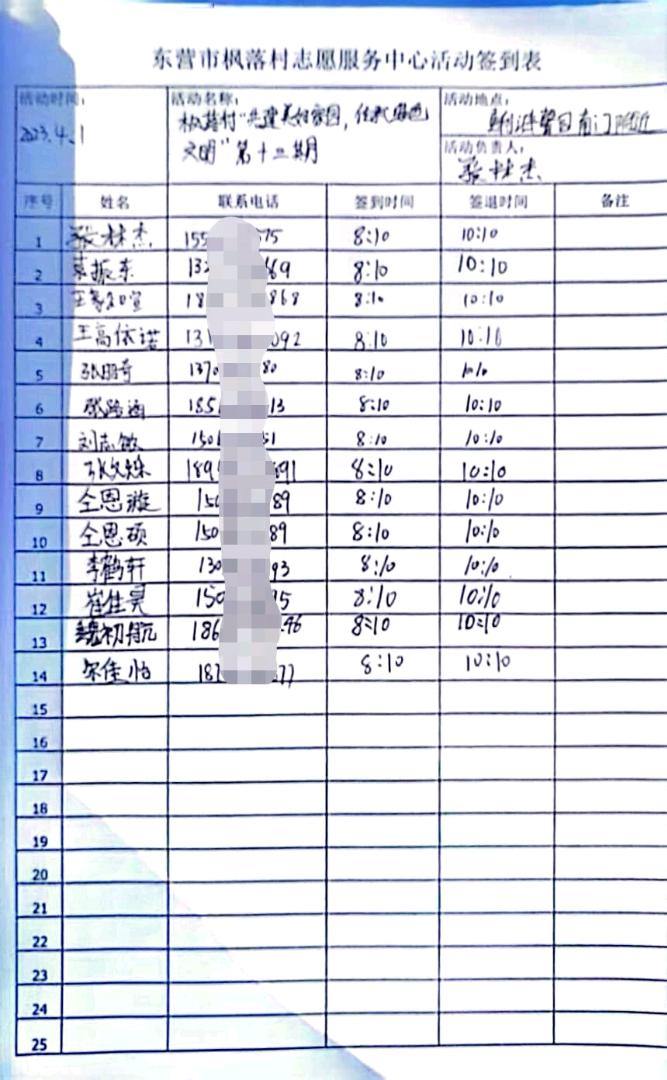 东营市枫落村志愿服务中心活动签到表
活动时间: 活动名称: 活动地点:
2023.4.1 枫落村"共建美好家园,传承
文明"第十三期 南门附近
活动负责人:
张林杰
序号 姓名 联系电话 签到时间 签退时间 备注
1 张林杰 155 75 8:10 10:10
2 振东 132 69 8:10 10:10
3 18 868 8:10 10:10
4 王高依诺 131 092 8:10 10:10
5 1370 80 8:10
6 张 185 13 8:10 10:10
7 刘志敏 150 51 8:10 10:10
8 189 891 8:10 10:10
9 仝恩漩 150 89 8:10 10:10
10 仝恩硕 150 89 8:10 10:10
11 李鹤轩 130 93 8:10 10:10
12 崔佳昊 150 95 8:10 10:10
13 魏初航 186 46 8:10 10:10
14 佳怡 187 77 8:10 10:10
15
16
17
18
19
20
21
22
23
24
25